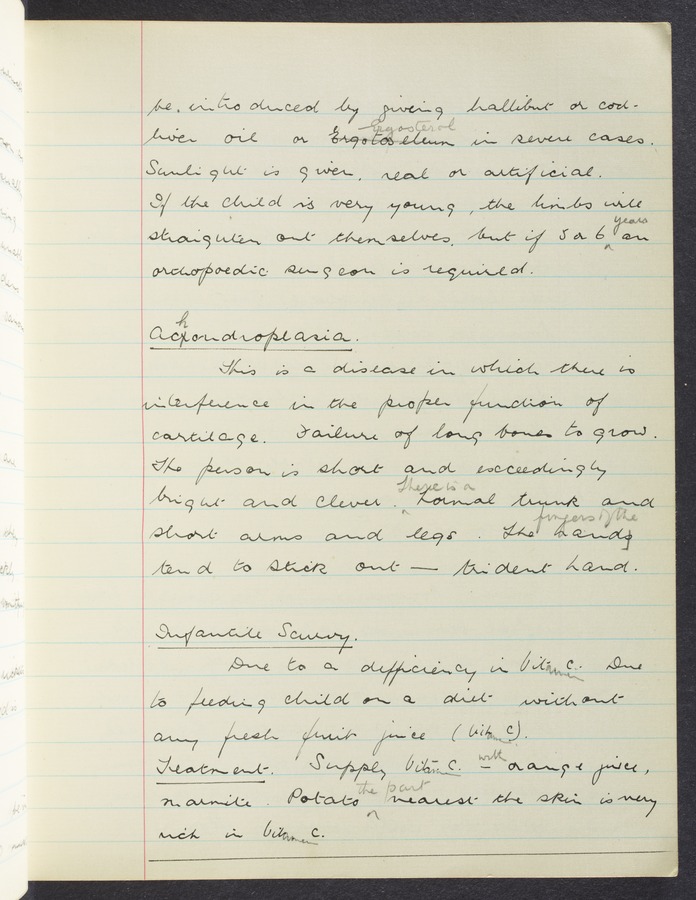 be introduced by giving hallibut or cod-
Ergosterol
liver oil or Ergotos eleum in severe cases.
Sunlight is given, real or artificial.
If the child is very young, the limbs will
years
straighten out themselves, but if 5 or 6 ^ an
orthopoedic surgeon is required.
Achondroplasia.
This is a disease in which there is
interference in the proper function of
cartilage. Failure of long bones to grow.
The person is short and exceedingly
There is a
bright and clever. ^ Normal trunk and
fingers of the
short arms and legs. The hands
tend to stick out — trident hand.
Infantile Scurvy.
Due to a difficiency in Vitamin C. Due
to feeding child on a diet without
any fresh fruit juice (Vit C).
with
Treatment. Supply Vitamin C. – orange juice,
the part
marmite. Potato ^ nearest the skin is very
rich in Vitamin C.